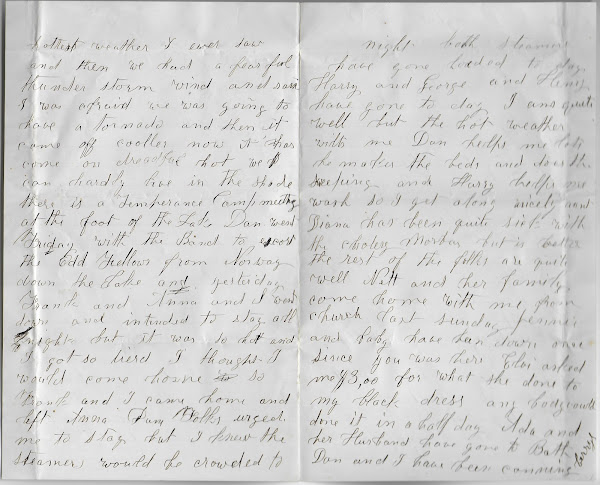 hottest weather I ever saw
and then we had a fearful
thunder storm wind and rain
I was afraid we was going to
have a tornado and then it
come off cooller now it has
come on dreadful hot we
can hardly live in the shade
there is a Temperance Camp meeting
at the foot of the Lake Dan went
Friday with the Band to escort
the Odd Fellows from Norway
down the Lake and yesterday
Frank and Anna and I went
down and intended to stay all
night but it was so hot and
I got so tierd I thought I
would come home so
Frank and I came home and
left Anna Dam Folks urged
me to stay but I knew the
steamer would be crowded to
night both steamers
have gone loaded to day
Harry and George and Henry
have gone to day I am quite
well but the hot weather
with me Dan helps me lots
he makes the beds and does the
sweeping and Harry helps me
wash so I get along nicely Aunt
Diana has been quite sick with
the cholera Morbus but is better
the rest of the folks are quite
well Natt and her family
come home with me from
church last sunday Jennie
and baby have been down once
since you was here asked
me $3,00 for what she done to
my black dress any body could
done it in a half day Ada and
her Husband have gone to Bath
Dan and I have been canning
berrys